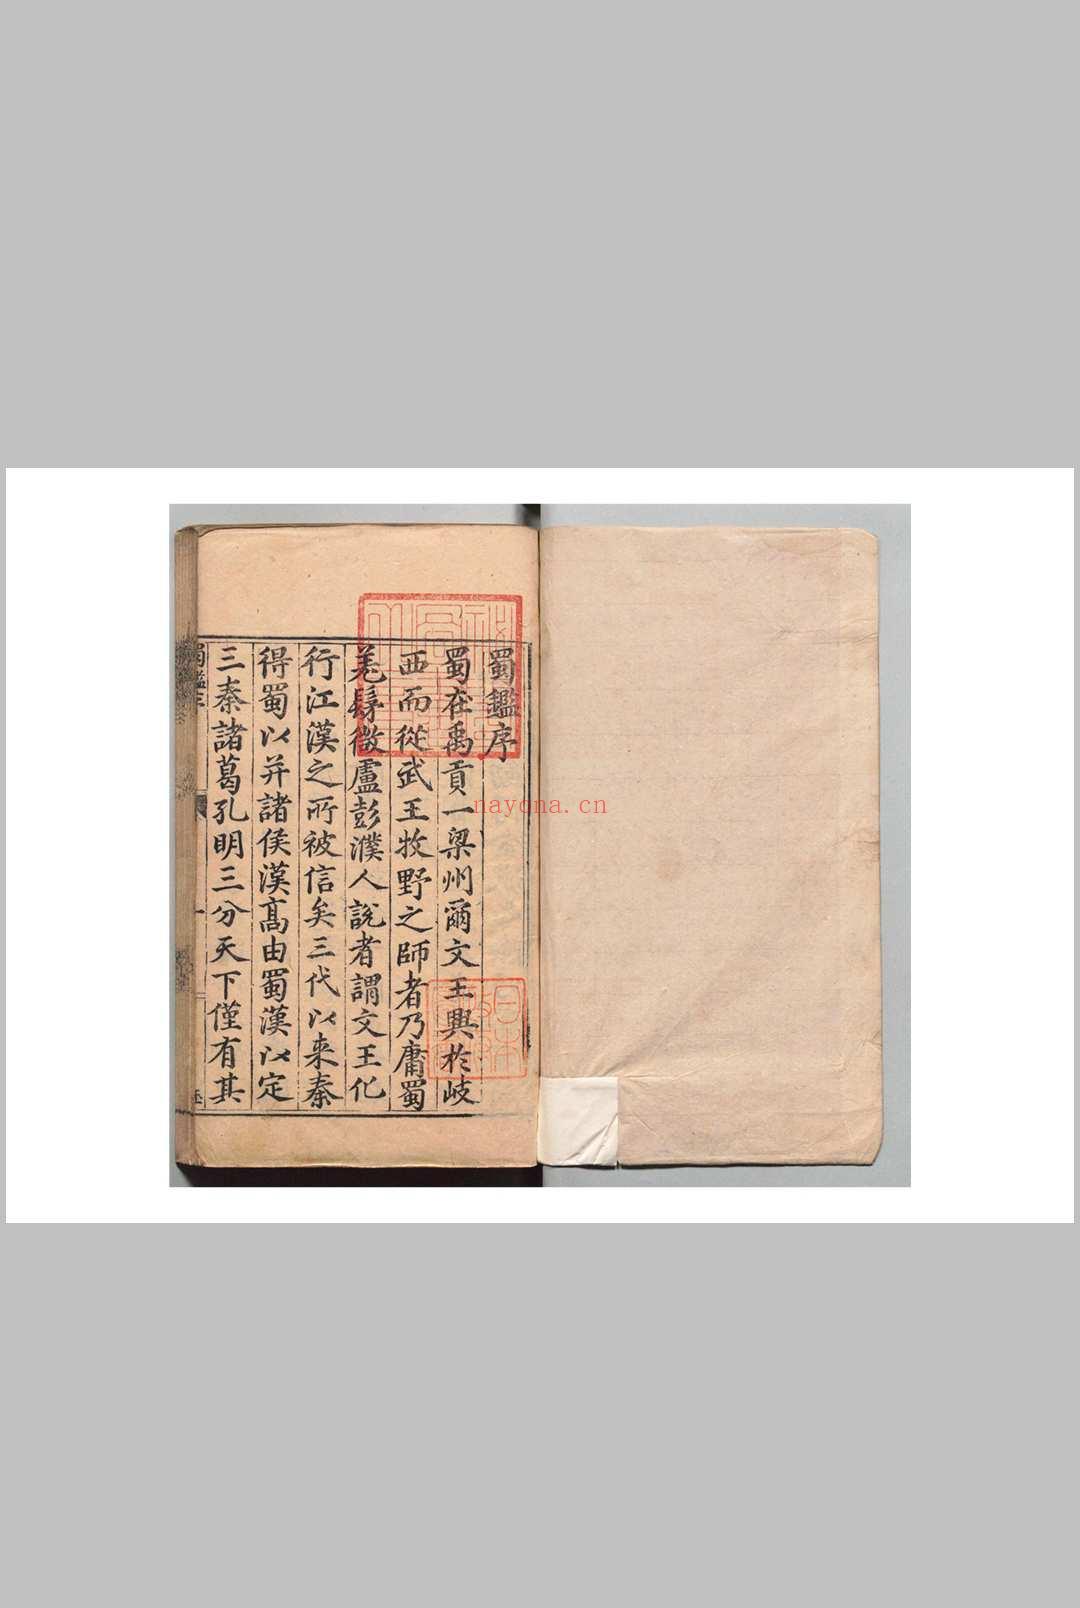 蜀鑑序
蜀在禹貢一梁州爾文王興於岐
西而從武王牧野之師者乃庸蜀
羌髳微盧彭濮人說者謂文王化
行江漢之所被信矣三代以来秦
得蜀以并諸侯漢髙由蜀漢以定
三秦諸葛孔明三分天下僅有其
蜀鑑序
一
nayona.cn